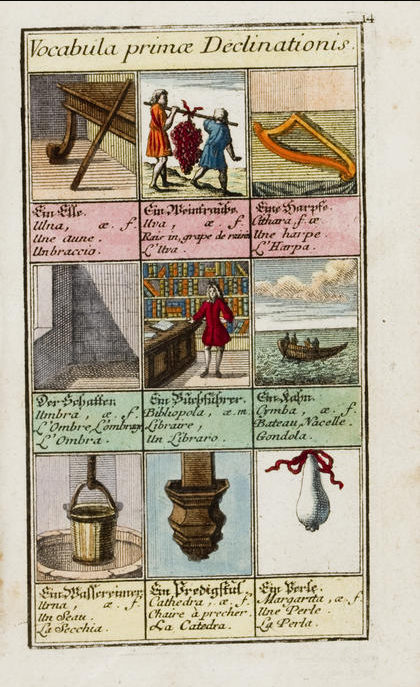 14
Vocabula primæ Declinationis.
Ein Elle.
Ulna, æ. f.
Une aune.
Unbraccio.
Ein Weintraube.
Uva, æ. f.
Raisin, grape de raisin
L'Uva.
Eine Harpfe.
Cithara, f. æ.
Une harpe.
L'Harpa.
Der Schatten
Umbra, æ. f.
L'Ombre L'ombrage
L'Ombra.
Ein Buchführer.
Bibliopola, æ. m.
Libraire,
Un Libraro.
Ein Kahn.
Cymba, æ. f.
Bateau, Nacelle.
Gondola.
Ein Wassereimer.
Urna, æ. f.
Un Seau.
La Secchia.
Ein Predigstul.
Cathedra, æ. f.
Chaire à precher.
La Catedra.
Ein Perle.
Margarita, æ. f.
Une Perle.
La Perla.